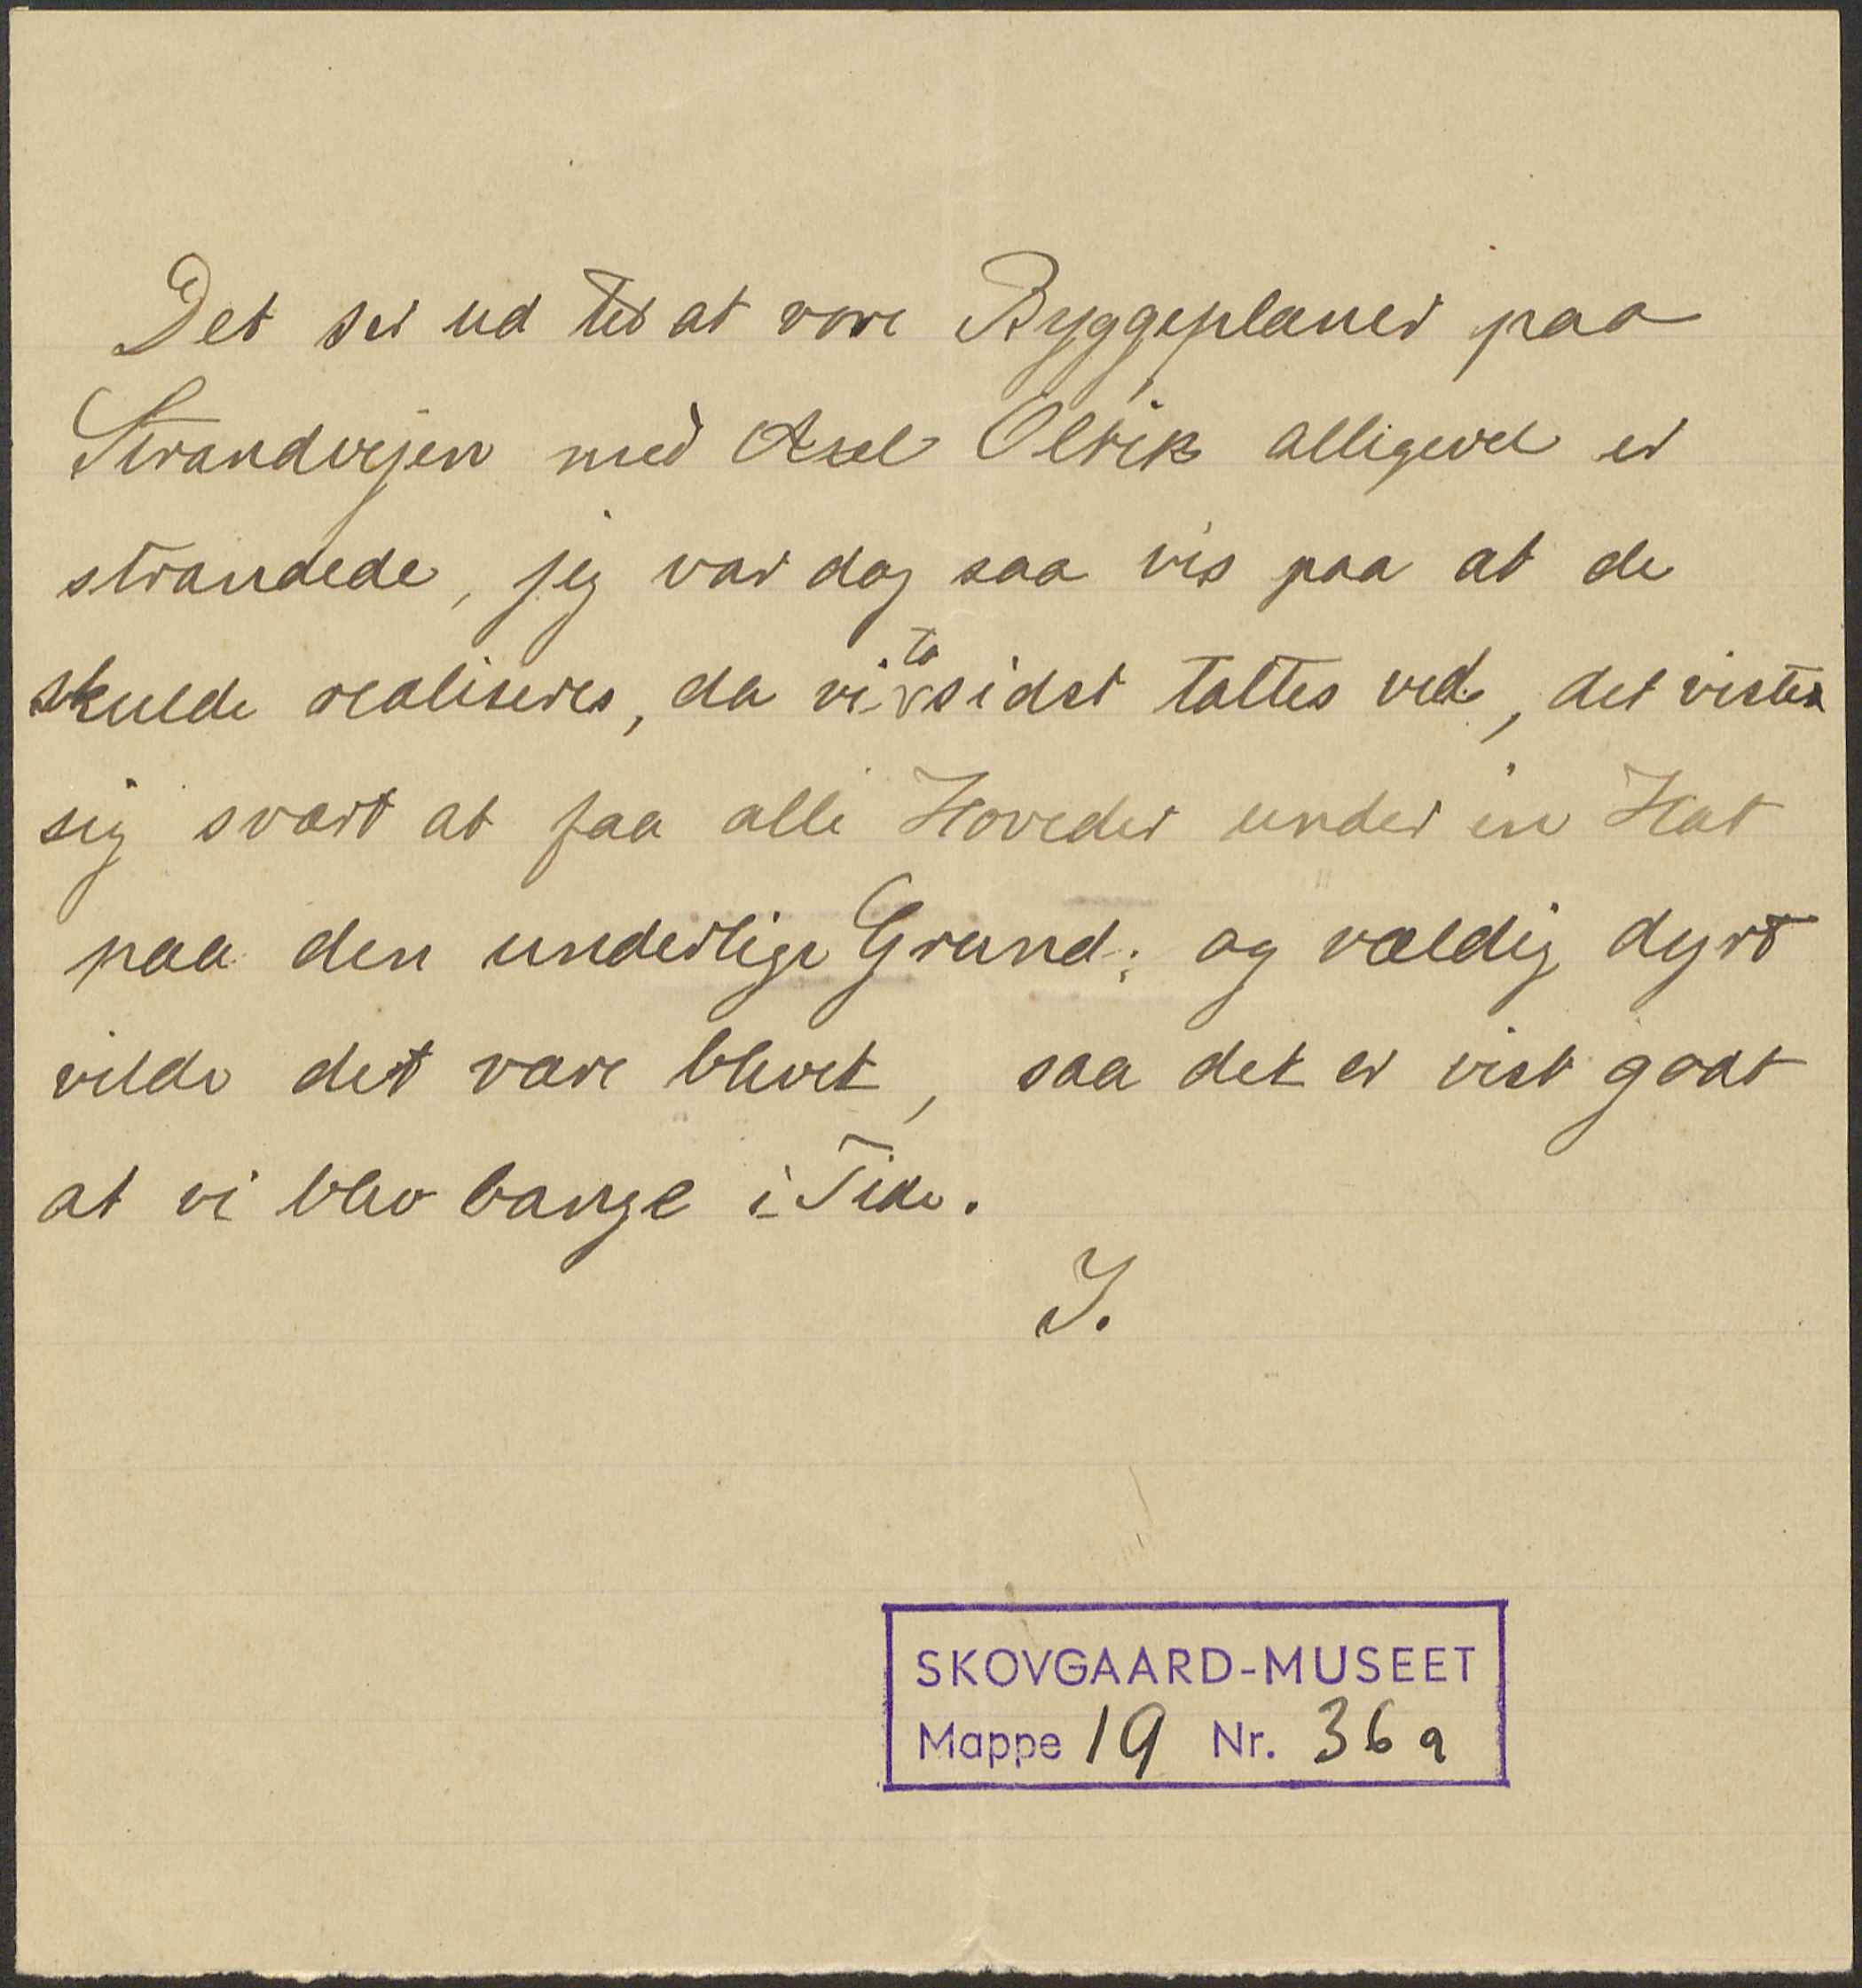 Det ser ud til at vore Byggeplaner paa
Strandvejen med Axel Olrik alligevel er
strandede, jeg var dog saa vis paa at de
skulde realiseres, da vi to sidst taltes ved, det viste
sig svært at faa alle Hoveder under en Hat
paa den underlige Grund; og vældig dyrt
vilde det være blevet, saa det er vist godt
at vi blev bange i Tide.
J.
SKOVGAARD-MUSEET
Mappe 19 Nr. 36a